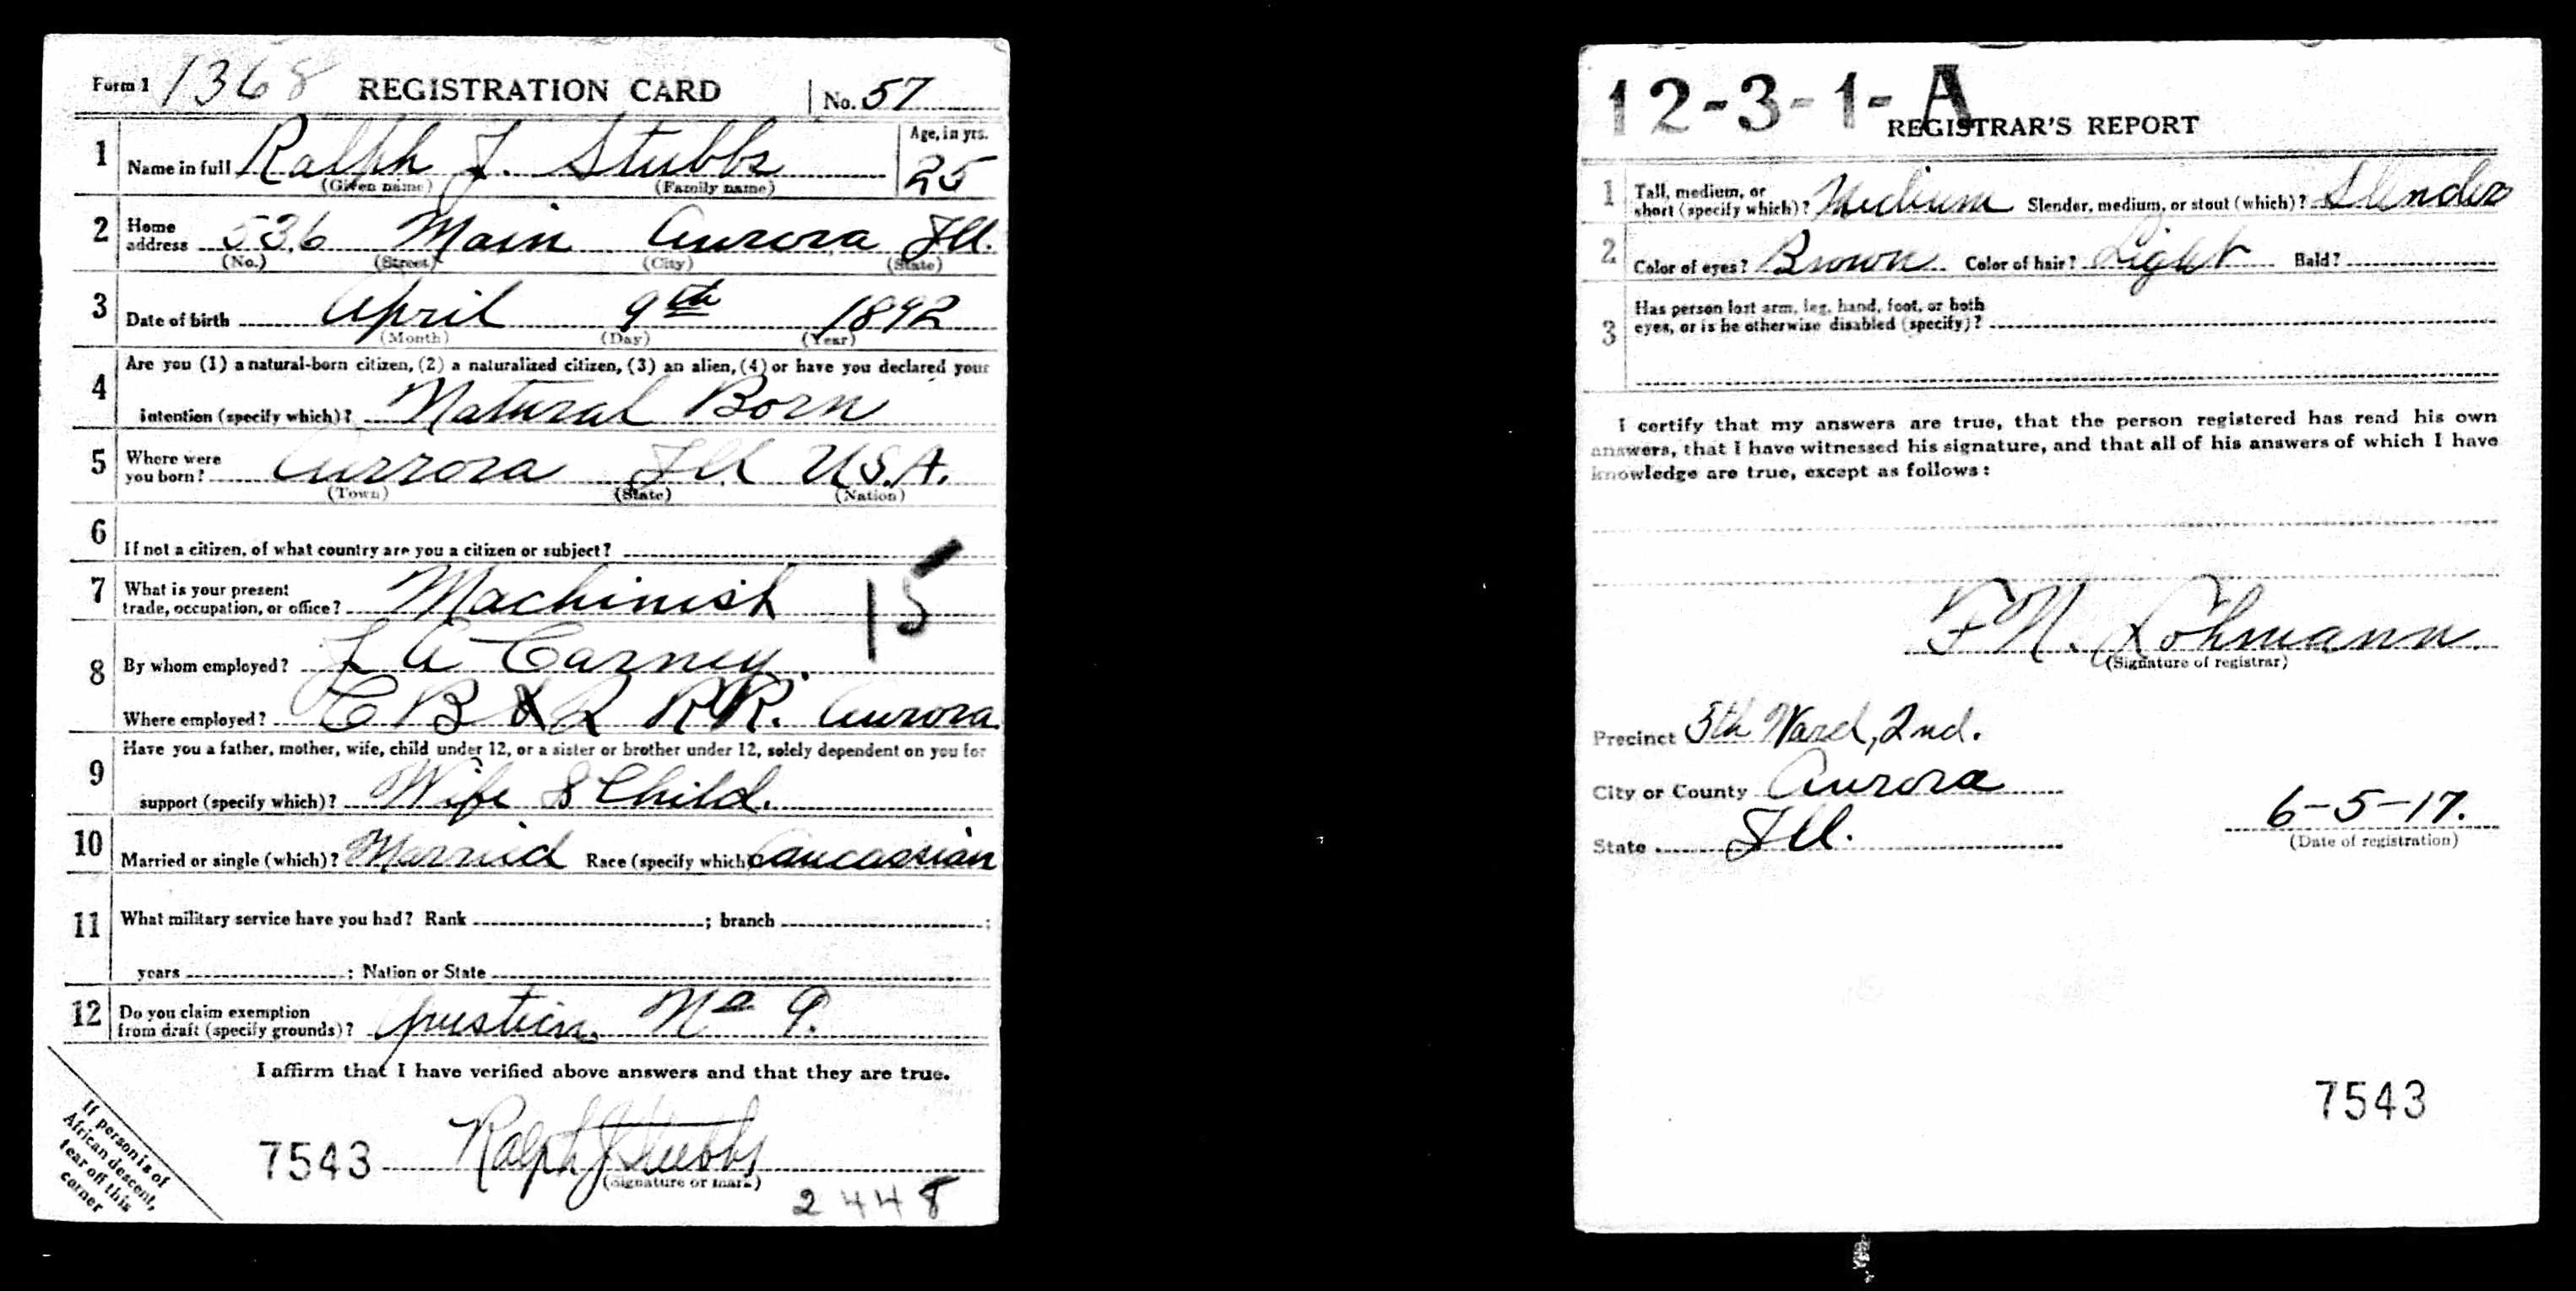 Form 1 1368 REGISTRATION CARD No. 57
1 Name in full Ralph J. Stubbs Age, in yrs. 25
(Given name) (Family name)
2 Home address 536 Main Aurora Ill.
(No.) (Street) (City) (State)
3 Date of birth April 9th 1892
(Month) (Day) (Year)
4 Are you (1) a natural-born citizen, (2) a naturalized citizen, (3) an alien, (4) or have you declared your
intention (specify which)? Natural Born
5 Where were you born? Aurrora Ill U.S.A.
(Town) (State) (Nation)
6 If not a citizen, of what country are you a citizen or subject?
7 What is your present trade, occupation, or office? Machinist 15
8 By whom employed? L A Carney
Where employed? C B & Q RR. Aurora
9 Have you a father, mother, wife, child under 12, or a sister or brother under 12, solely dependent on you for
support (specify which)? Wife & Child.
10 Married or single (which)? Married Race (specify which) Caucassian
11 What military service have you had? Rank ; branch ;
years ; Nation or State
12 Do you claim exemption from draft (specify grounds)? question No 9.
I affirm that I have verified above answers and that they are true.
If person is of
African descent,
tear off this
corner
7543 Ralph J Stubbs
(Signature or mark)
2448
12-3-1-A
REGISTRAR'S REPORT
1 Tall, medium, or short (specify which)? Medium Slender, medium, or stout (which)? Slender
2 Color of eyes? Brown Color of hair? Light Bald?
3 Has person lost arm, leg, hand, foot, or both
eyes, or is he otherwise disabled (specify)?
I certify that my answers are true, that the person registered has read his own
answers, that I have witnessed his signature, and that all of his answers of which I have
knowledge are true, except as follows:
F N. Lohmann
(Signature of registrar)
Precinct 5th Ward, 2nd.
City or County Aurora
State Ill.
6-5-17.
(Date of registration)
7543